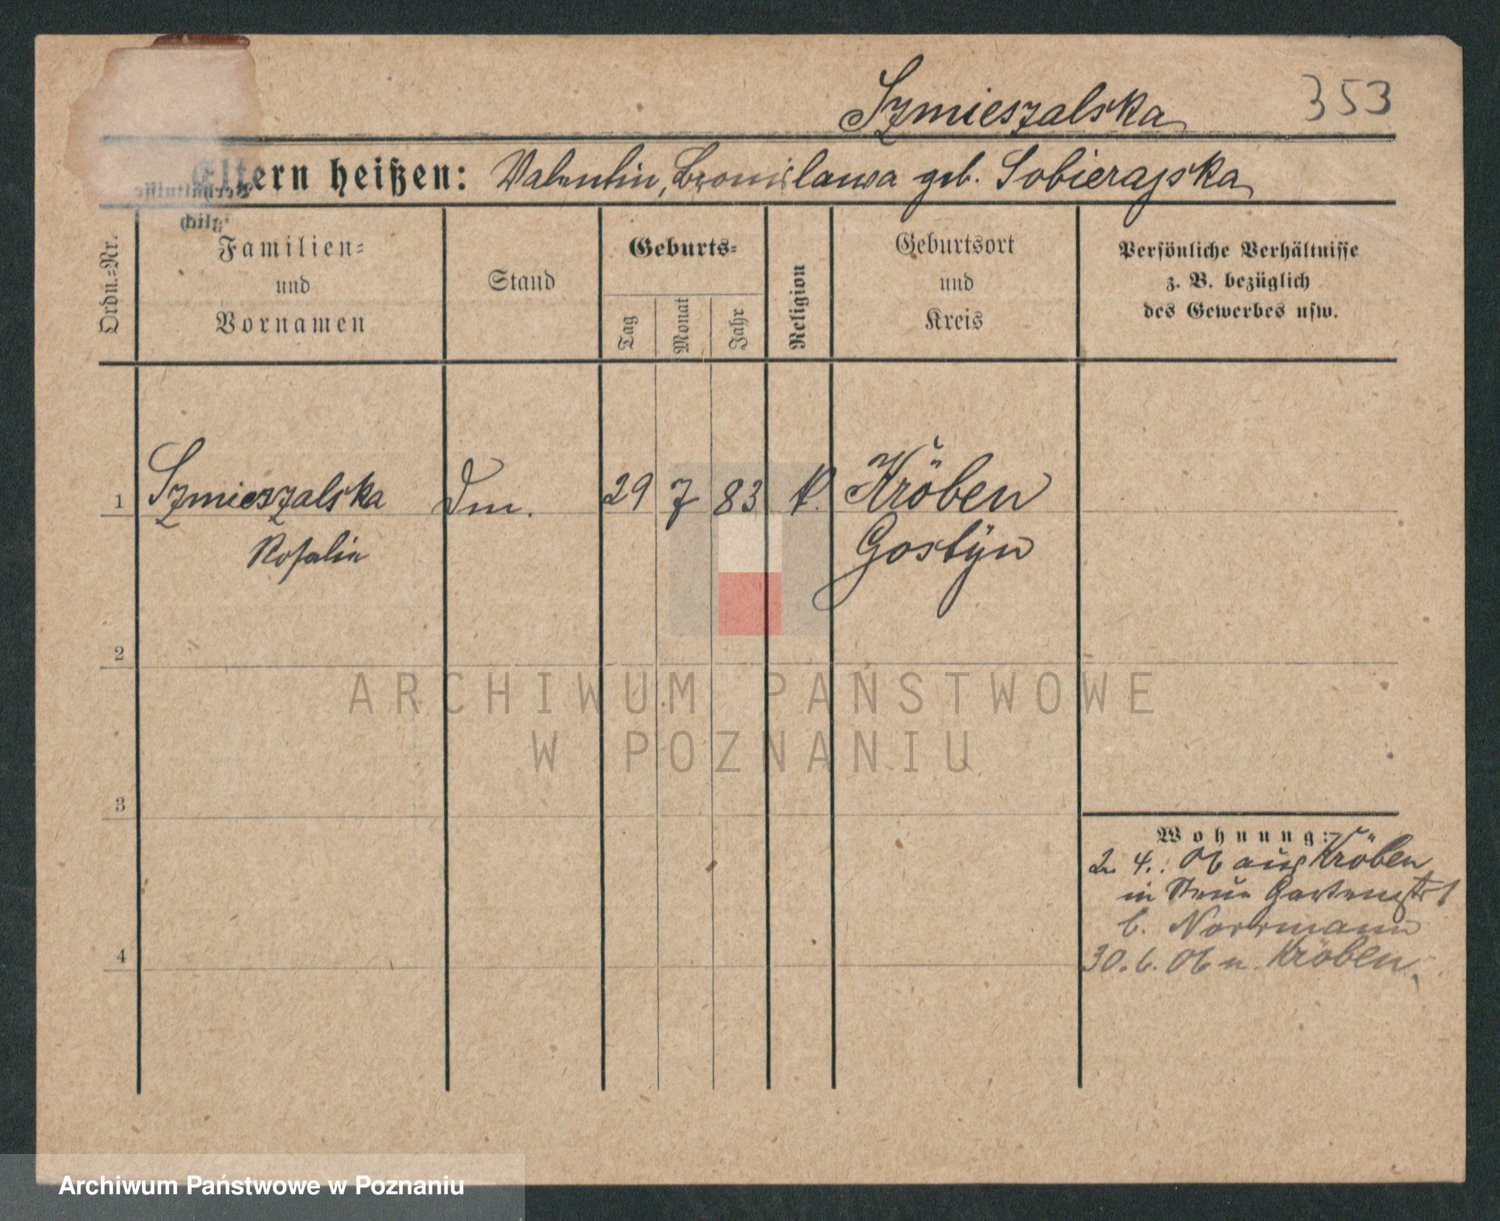 353
Szmieszalska
Eltern heißen: Valentin, Bronislawa geb. Sobierajska
Ordn.-Nr.
Familien-
und
Vornamen
Stand
Geburts-
Tag
Monat
Jahr
Religion
Geburtsort
und
Kreis
Persönliche Verhältnisse
z. B. bezüglich
des Gewerbes usw.
1 Szmieszalska Dm. 29 7 83 k. Kröben
Rosalie Gostÿn
2
3
4
Wohnung:
2. 4. 06 aus Kröben
in Neue Gartenstr 1
b. Normann
30. 6. 06 n. Kröben
ARCHIWUM PAŃSTWOWE
W POZNANIU
Archiwum Państwowe w Poznaniu